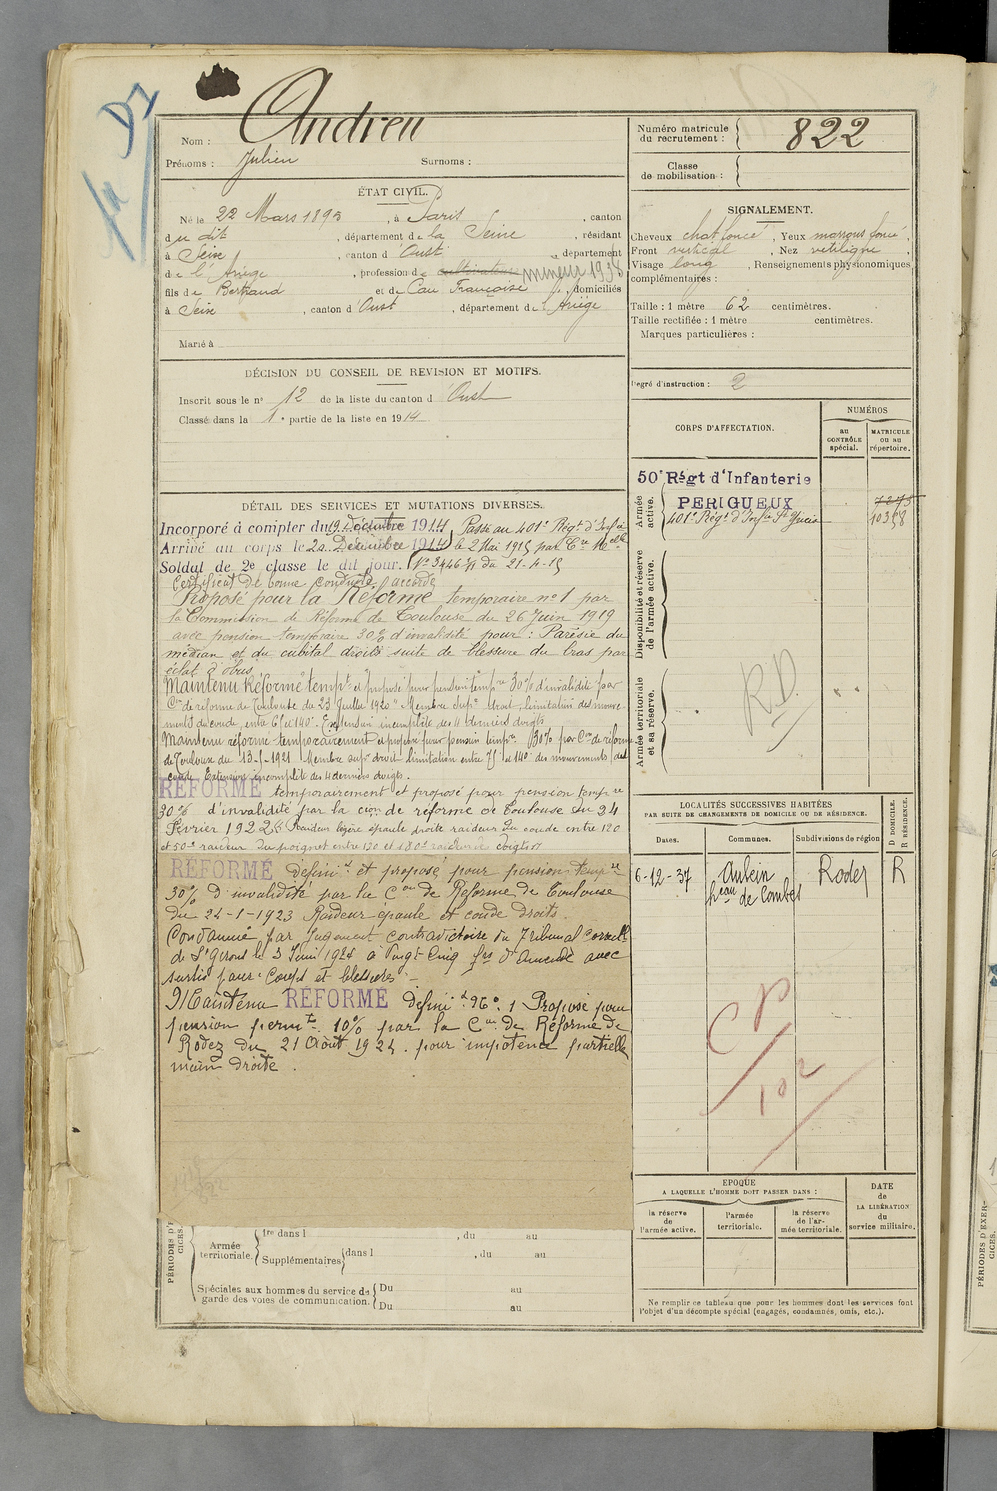 Nom : Andreu
Prénoms : Julien Surnoms :
Numéro matricule du recrutement : 822
Classe de mobilisation :
ÉTAT CIVIL.
Né le 22 Mars 1895, à Paris, canton
du dit, département de la Seine, résidant
à Seix, canton d'Oust, département
de l'Ariège, profession de cultivateur mineur 1938
fils de Bertrand et de Cau Françoise, domiciliés
à Seix, canton d'Oust, département de l'Ariège
Marié à
SIGNALEMENT.
Cheveux chat. foncé, Yeux marrons foncé,
Front vertical, Nez rectiligne,
Visage long, Renseignements physionomiques
complémentaires :
Taille : 1 mètre 62 centimètres.
Taille rectifiée : 1 mètre centimètres.
Marques particulières :
Degré d'instruction : 2
DÉCISION DU CONSEIL DE REVISION ET MOTIFS.
Inscrit sous le n° 12 de la liste du canton d'Oust
Classé dans la 1e partie de la liste en 1914
CORPS D'AFFECTATION.
NUMÉROS
au CONTRÔLE spécial.
MATRICULE OU AU répertoire.
Armée active.
50e Régt d'Infanterie
PERIGUEUX 7273
401e Régt d'Infie 10358
Disponibilité et réserve de l'armée active.
Armée territoriale et sa réserve.
R.D.
DÉTAIL DES SERVICES ET MUTATIONS DIVERSES.
Incorporé à compter du 19 Décembre 1914 Passé au 401e Régt d'Infie
Arrivé au corps le 20 Décembre 1914 le 2 Mai 1915 par
Soldat de 2e classe le dit jour. N° 3446 du 21-4-15
Certificat de bonne conduite accordé
Proposé pour la Réforme temporaire n° 1 par
la Commission de Réforme de Toulouse du 26 Juin 1919
avec pension temporaire 30% d'invalidité pour : Parésie du
médian et du cubital droits suite de blessure du bras par
éclat d'obus
Maintenu Réformé tempt et proposé pour pension tempre 30% d'invalidité par
Con de réforme de Toulouse du 23 Juillet 1920 "Membre supr droit, limitation des mouve-
ments du coude, entre 65 et 140°. Extension incomplète des 4 derniers doigts
Maintenu réformé temporairement et proposé pour pension tempre 30% par Con de réforme
de Toulouse du 13-5-1921 Membre supr droit limitation entre 75 et 140° des mouvements du
coude. Extension incomplète des 4 derniers doigts.
RÉFORMÉ temporairement et proposé pour pension tempre
30% d'invalidité par la con de réforme de Toulouse du 24
Février 1922 Raideur légère épaule droite raideur du coude entre 120
et 50° raideur du poignet entre 130 et 180° raideur de doigts
RÉFORMÉ définit et proposé pour pension tempre
30% d'invalidité par la Con de Réforme de Toulouse
du 24-1-1923 Raideur épaule et coude droits.
Condamné par jugement contradictoire du Tribunal correctl
de St Girons le 3 Juin 1924 à Vingt Cinq frs d'amende avec
sursis pour : Coups et blessures
Maintenu RÉFORMÉ définit N° 1 Proposé pour
pension permte 10% par la Con de Réforme de
Rodez du 21 Août 1924. pour impotence partielle
main droite.
LOCALITÉS SUCCESSIVES HABITÉES
PAR SUITE DE CHANGEMENTS DE DOMICILE OU DE RÉSIDENCE.
Dates. Communes. Subdivisions de région D DOMICILE. R RÉSIDENCE.
6-12-37 Aubin Rodez R
heau de Combes
EPOQUE
A LAQUELLE L'HOMME DOIT PASSER DANS :
la réserve de l'armée active.
l'armée territoriale.
la réserve de l'armée territoriale.
DATE de LA LIBÉRATION du service militaire.
PÉRIODES D'EXERCICES.
Armée territoriale.
1re dans l , du au
Supplémentaires dans l , du au
Spéciales aux hommes du service de garde des voies de communication.
Du au
Du au
Ne remplir ce tableau que pour les hommes dont les services font
l'objet d'un décompte spécial (engagés, condamnés, omis, etc.).
PÉRIODES D'EXER-
CICES.